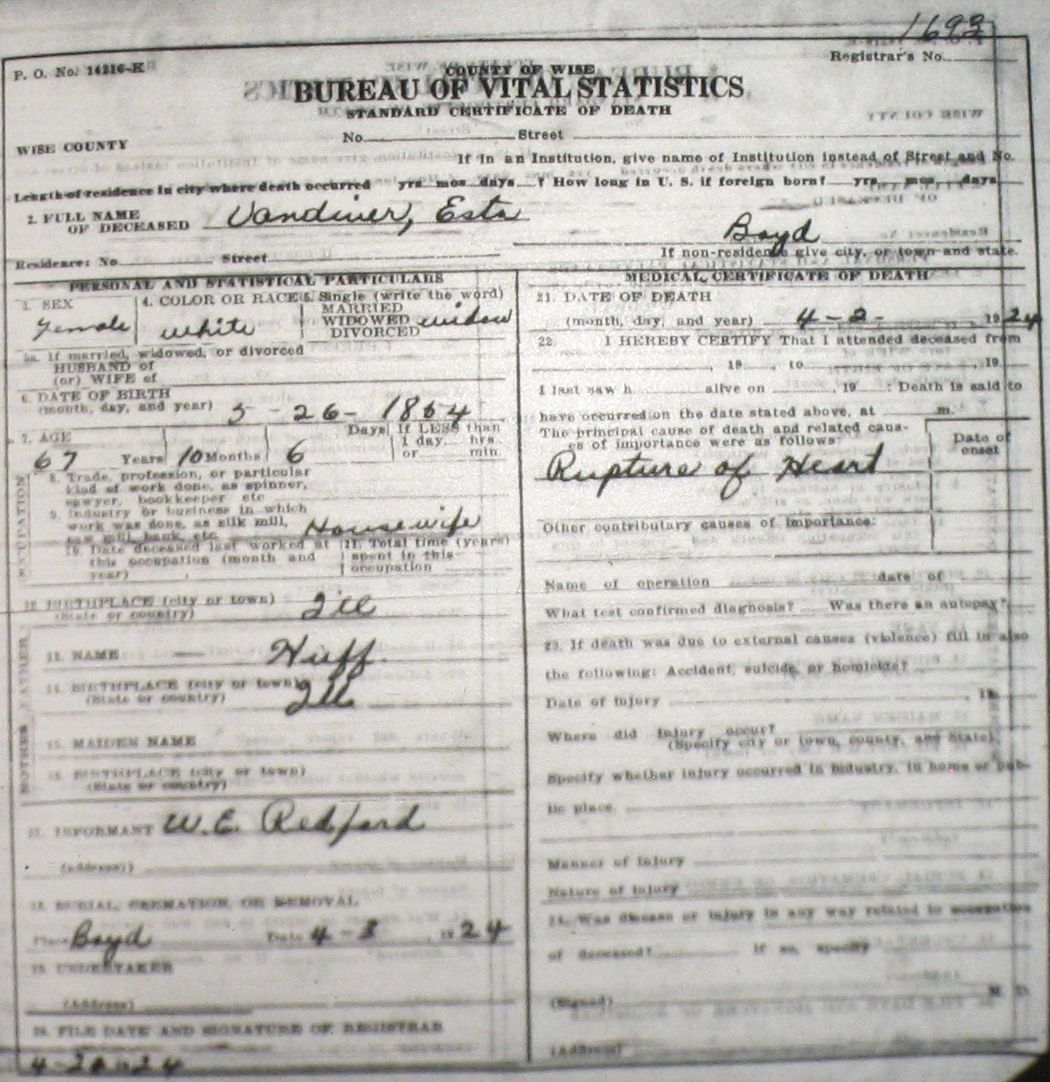 1693
P. O. No. 14216-K
Registrar's No.
COUNTY OF WISE
BUREAU OF VITAL STATISTICS
STANDARD CERTIFICATE OF DEATH
WISE COUNTY
No. Street
If in an Institution, give name of Institution instead of Street and No.
Length of residence in city where death occurred yrs mos days ? How long in U. S. if foreign born? yrs mos days
2. FULL NAME
OF DECEASED Vandiver, Esta
Boyd
Residence: No Street If non-residence give city, or town and state.
PERSONAL AND STATISTICAL PARTICULARS
3. SEX 4. COLOR OR RACE 5. Single (write the word)
MARRIED
Female white WIDOWED widow
DIVORCED
5a. If married, widowed, or divorced
HUSBAND of
(or) WIFE of
6. DATE OF BIRTH
(month, day, and year) 5-26-1864
7. AGE Days If LESS than
67 Years 10 Months 6 1 day, hrs.
or min.
OCCUPATION
8. Trade, profession, or particular
kind of work done, as spinner,
sawyer, bookkeeper etc
9. Industry or business in which
work was done, as silk mill,
saw mill, bank, etc Housewife
10. Date deceased last worked at 11. Total time (years)
this occupation (month and spent in this
year) occupation
12. BIRTHPLACE (city or town) Ill
(State or country)
FATHER
13. NAME Huff
14. BIRTHPLACE (city or town)
(State or country) Ill
MOTHER
15. MAIDEN NAME
16. BIRTHPLACE (city or town)
(State or country)
17. INFORMANT W. E. Redford
(address)
18. BURIAL, CREMATION, OR REMOVAL
Place Boyd Date 4-3 1924
19. UNDERTAKER
(Address)
FILE DATE AND SIGNATURE OF REGISTRAR
4-20-24
MEDICAL CERTIFICATE OF DEATH
21. DATE OF DEATH
(month, day, and year) 4-2- 1924
22. I HEREBY CERTIFY That I attended deceased from
, 19 , to , 19
I last saw h alive on , 19 : Death is said to
have occurred on the date stated above, at m.
The principal cause of death and related causes
of importance were as follows: Date of onset
Rupture of Heart
Other contributory causes of importance:
Name of operation date of
What test confirmed diagnosis? Was there an autopsy?
23. If death was due to external causes (violence) fill in also
the following: Accident, suicide, or homicide?
Date of injury , 19
Where did injury occur?
(Specify city or town, county, and State)
Specify whether injury occurred in industry, in home or pub-
lic place.
Manner of injury
Nature of injury
24. Was disease or injury in any way related to occupation
of deceased? If so, specify
(Signed) M. D.
(Address)